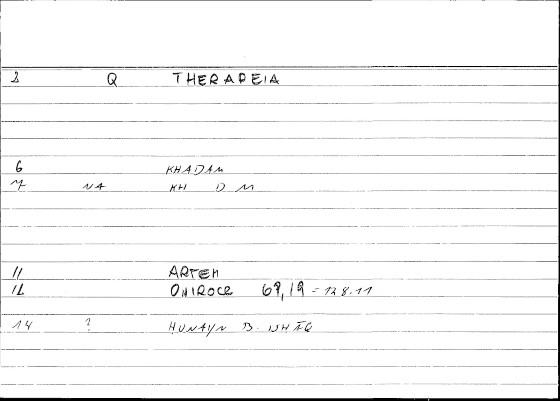 2 Q THERAPEIA
6 KHADAM
7 NA KH D M
11 ARTEM
12 ONIROCR 69,19 = 128.11
14 ? HUNAYN B. ISHĀQ